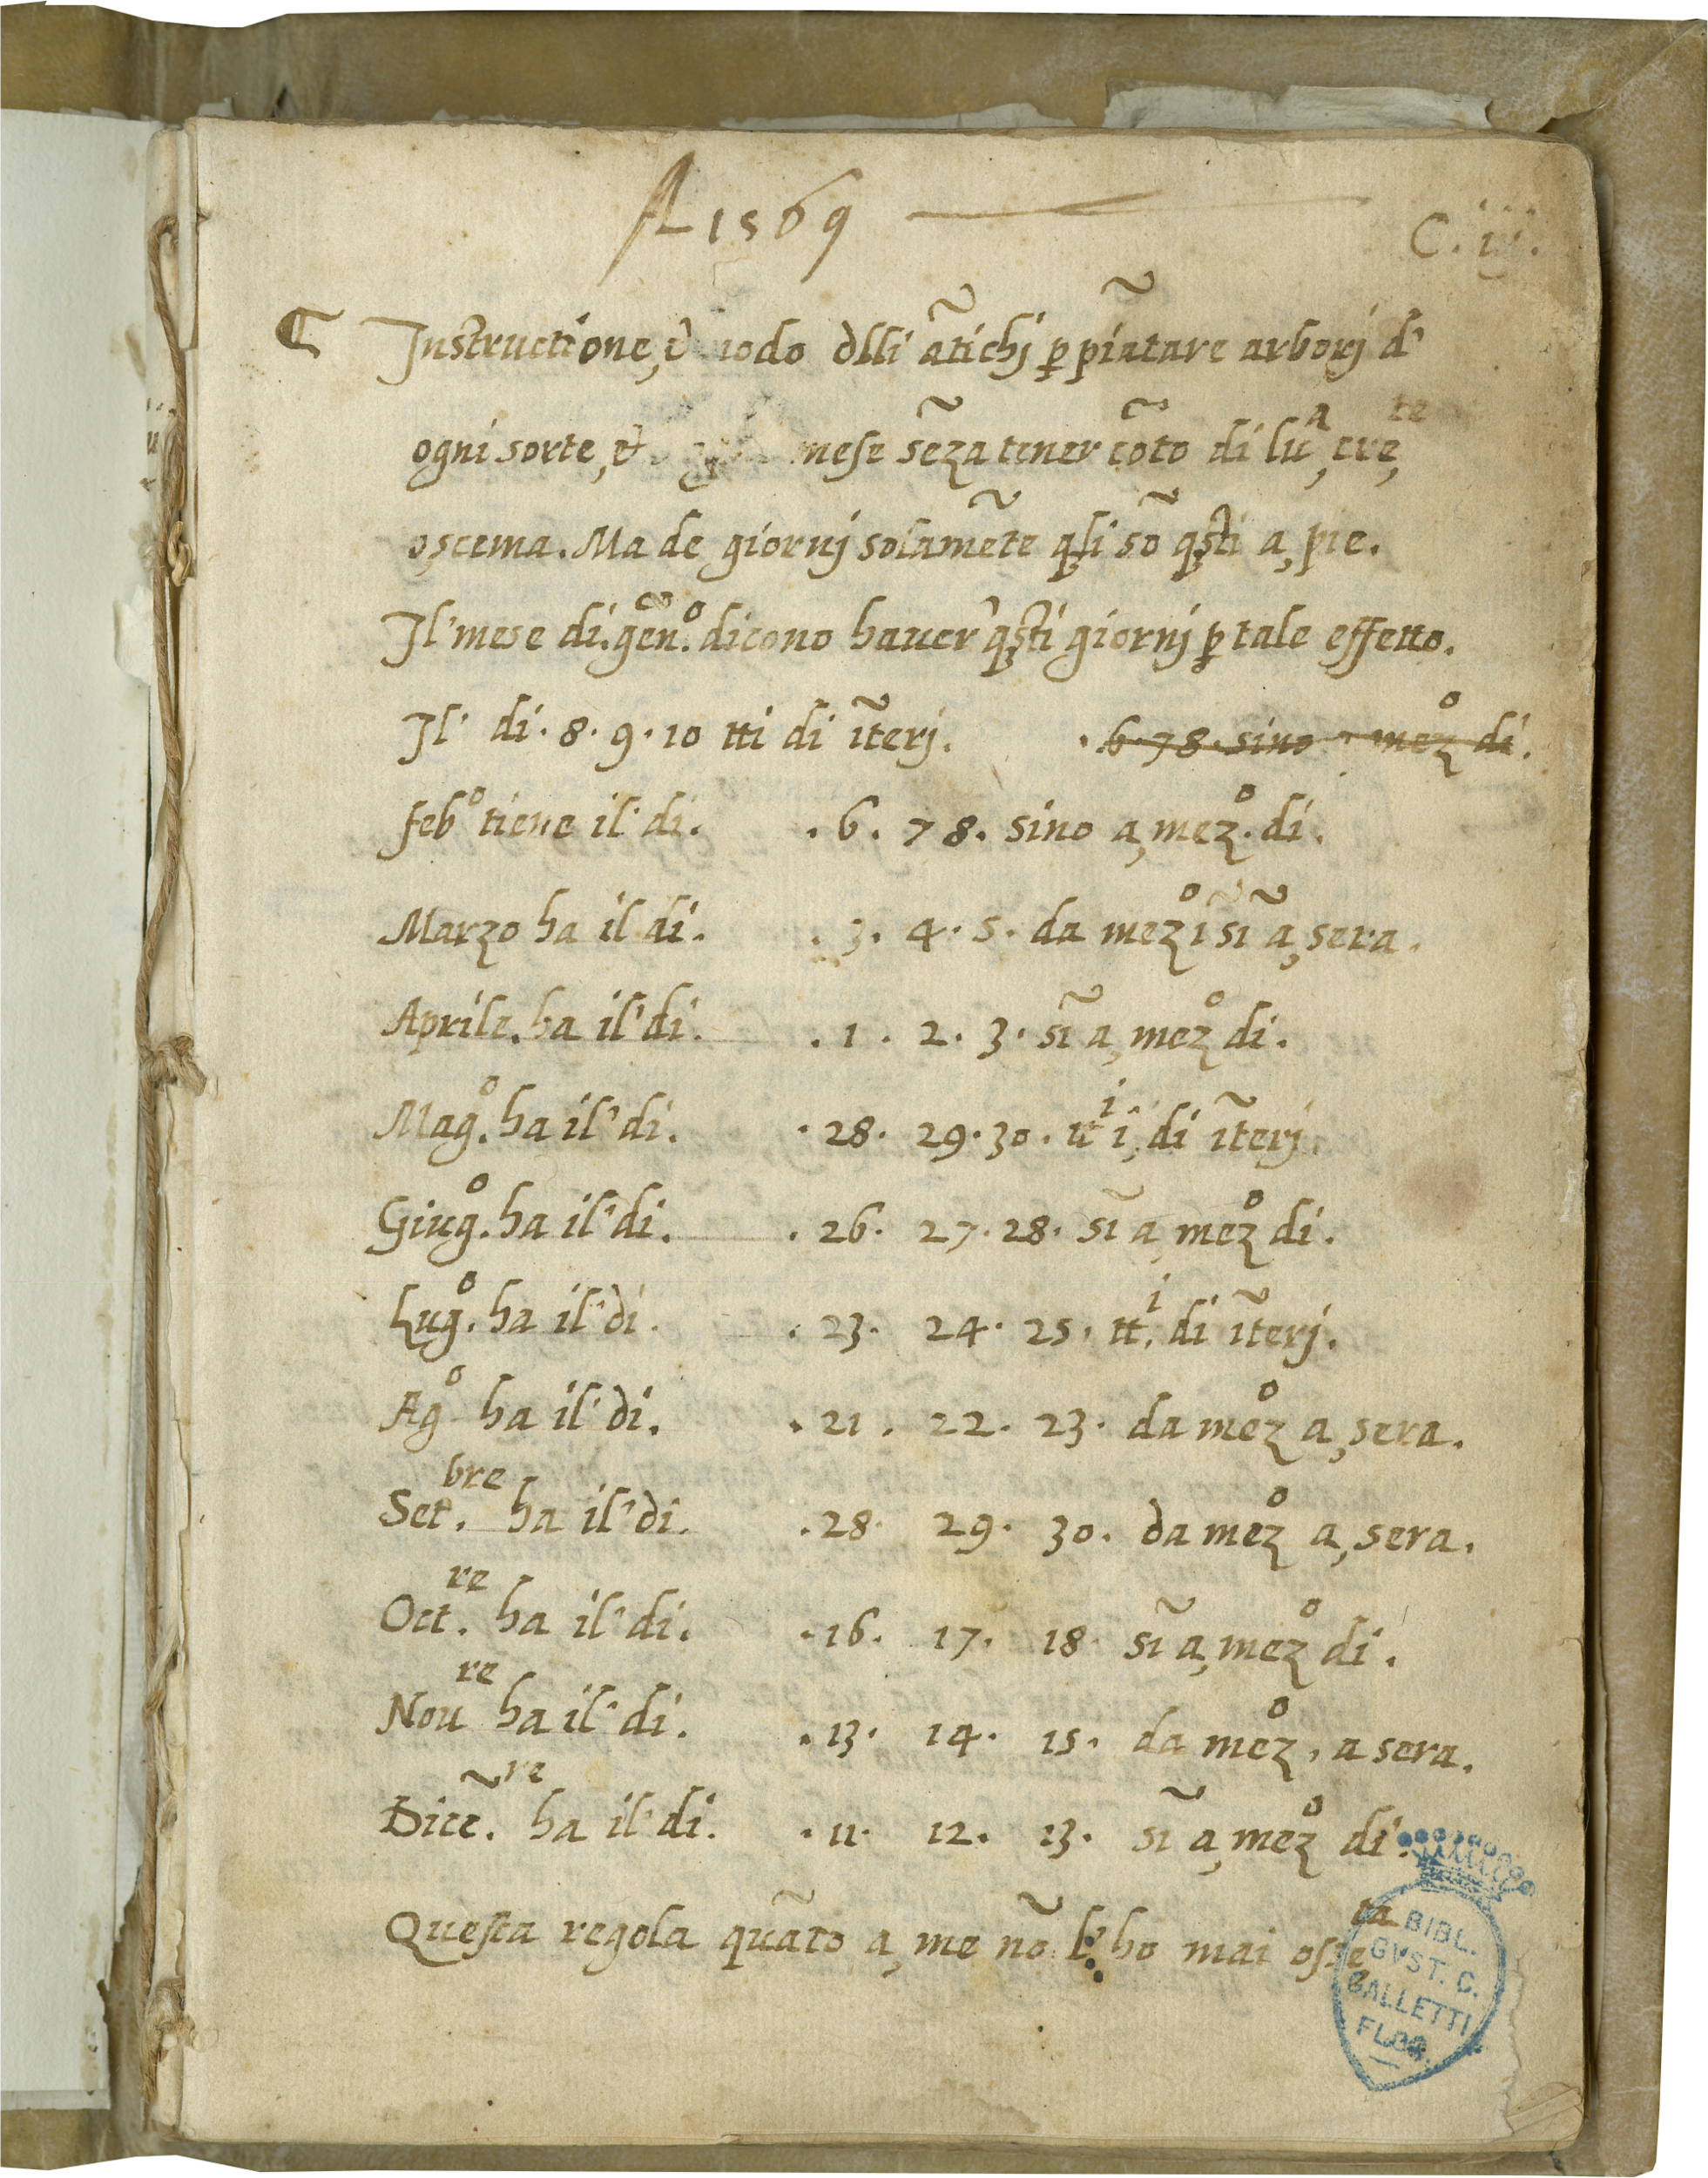 A 1569
C. iij.
Instructione, & modo dlli ãtichi p piãtare arborj d'
ogni sorte, & mese sẽza tener cõto di luᵃ, creᵗᵉ,
o, scema. Ma de giornj solamẽte qli sõ qsti a, pie.
Il' mese di. gen.º dicono hauer' qsti giornj p tale effetto.
Il' di. 8. 9. 10 tti di ĩterj. . 6. 7 8. sino a mezº di.
febº tiene il' di. . 6. 7 8. sino a, mezº. di.
Marzo ha il di. . 3. 4. 5. da mezº ĩ sĩ a, sera.
Aprile. ha il' di. . 1. 2. 3. sĩ a, mezº di.
Magº. ha il' di. . 28. 29. 30. di ĩterj.
Giugº. ha il' di. . 26. 27. 28. sĩ a mezº di.
Lugº. ha il' di. . 23. 24. 25. ttⁱ. di ĩterj.
Agº ha il' di. . 21. 22. 23. da mezº a, sera.
Set.ᵇʳᵉ ha il' di. . 28. 29. 30. da mezº a, sera.
Oct.ʳᵉ ha il' di. . 16. 17. 18 sĩ a, mezº di.
Nouʳᵉ ha il' di. . 13. 14. 15. da mezº, a sera.
Dicẽ.ʳᵉ ha il' di. . 11. 12. 13. sĩ a, mezº di.
Questa regola quãto a, me nõ l' ho mai osseᵗᵃ
BIBL.
GVST. C.
GALLETTI
FLOR.